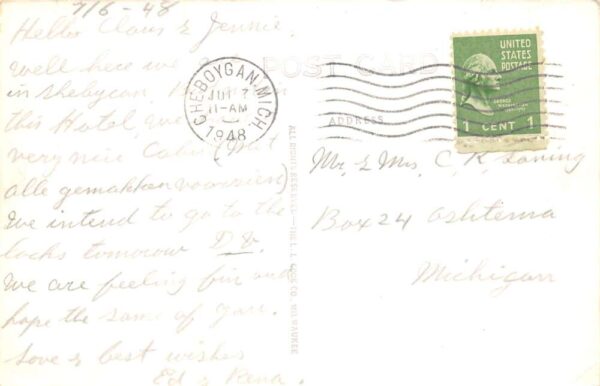 7/6-48
Hello Claus & Jennie.
Well here we
in Shebygan.
this Hotel, we
very nice Cabin (met
alle gemakken voorzien)
We intend to go to the
locks tomorow D.V.
We are feeling fin and
hope the same of you.
Love & best wishes
Ed & Rena.
POST CARD
CHEBOYGAN, MICH.
JUL 7
11-AM
1948
UNITED
STATES
POSTAGE
GEORGE
WASHINGTON
1 CENT 1
ADDRESS
ALL RIGHTS RESERVED—THE L. L. COOK CO., MILWAUKEE
Mr. & Mrs. C. K. Loning
Box 24 Oshtema
Michigan